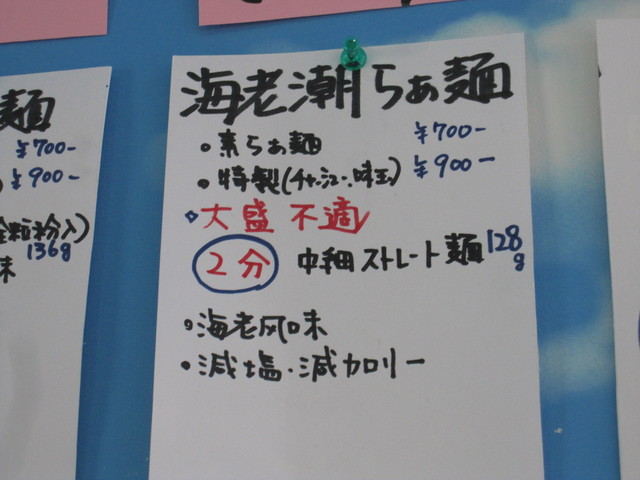 麺
¥700-
¥900-
全粒粉入)
136g
味
海老潮らぁ麺
・素らぁ麺 ¥700-
・特製(チャーシュー、味玉) ¥900-
◇大盛 不適
2分 中細ストレート麺 128g
・海老风味
・減塩・減カロリー